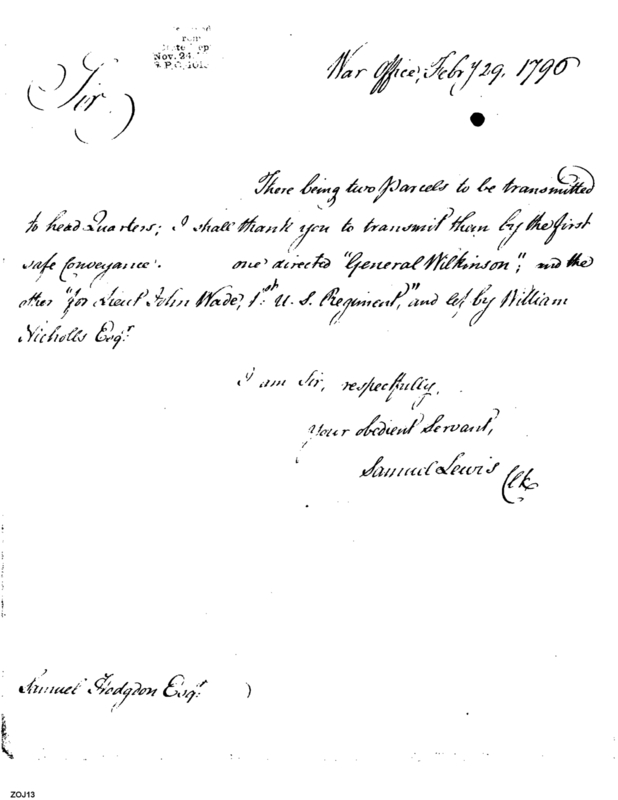 Nov. 24.
War Office, Feby 29. 1796
Sir
There being two Parcels to be transmitted
to head Quarters; I shall thank you to transmit them by the first
safe Conveyance. one directed "General Wilkinson"; and the
other "for Lieut John Wade, 1st U. S. Regiment," and left by William
Nicholls Esqr.
I am Sir, respectfully,
Your obedient Servant,
Samuel Lewis Clk
Samuel Hodgdon Esqr. )
ZOJ13